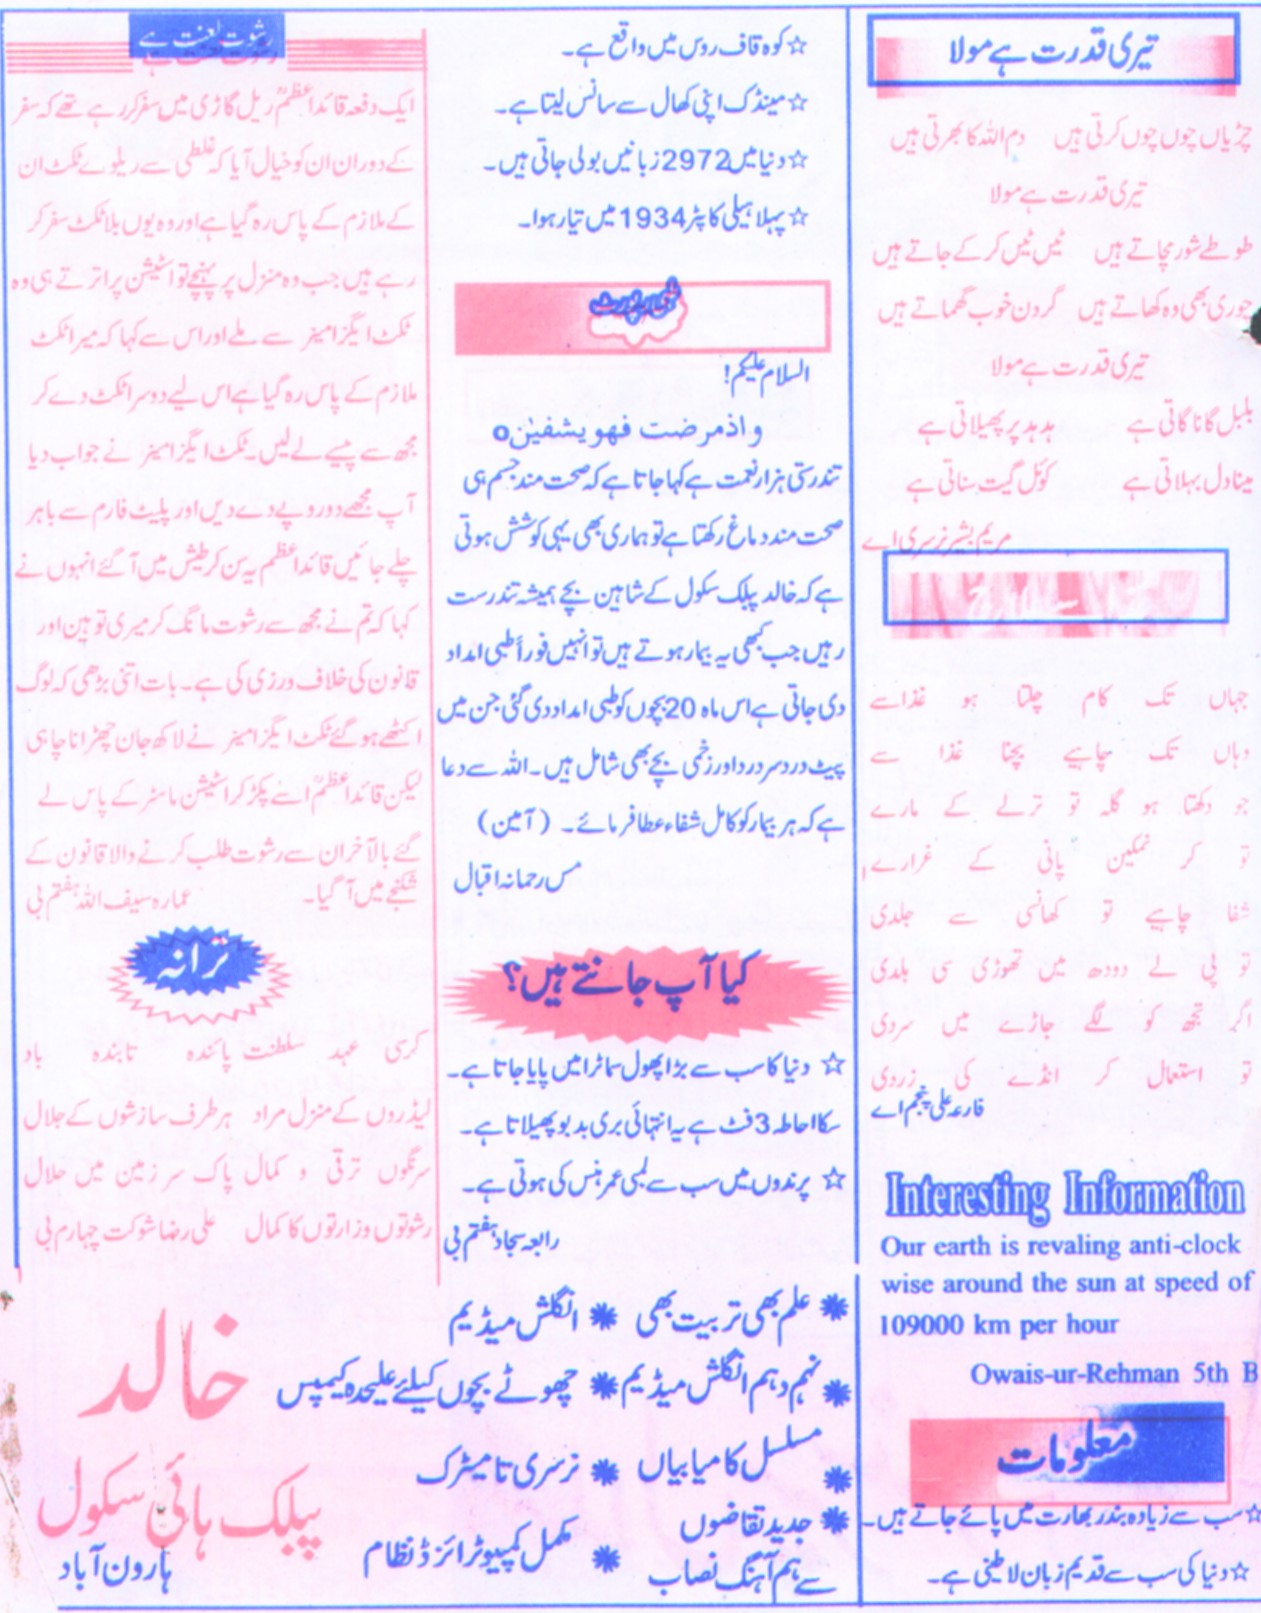 تیری قدرت ہے مولا
چڑیاں چوں چوں کرتی ہیں دم اللہ کا بھرتی ہیں
تیری قدرت ہے مولا
طوطے شور مچاتے ہیں ٹیں ٹیں کر کے جاتے ہیں
چوری بھی وہ کھاتے ہیں گردن خوب گھماتے ہیں
تیری قدرت ہے مولا
بلبل گانا گاتی ہے ہدہد پر پھیلاتی ہے
مینا دل بہلاتی ہے کوئل گیت سناتی ہے
مریم بشیر نرسری اے
جہاں تک کام چلتا ہو غذا سے
وہاں تک چاہیے بچنا غذا سے
جو دکھتا ہو گلہ تو نزلے کے مارے
تو کر نمکین پانی کے غرارے
شفا چاہیے تو کھانسی سے جلدی
تو پی لے دودھ میں تھوڑی سی ہلدی
اگر تجھ کو لگے جاڑے میں سردی
تو استعمال کر انڈے کی زردی
فارعہ علی پنجم اے
Interesting Information
Our earth is revaling anti-clock
wise around the sun at speed of
109000 km per hour
Owais-ur-Rehman 5th B
معلومات
☆ سب سے زیادہ بندر بھارت میں پائے جاتے ہیں۔
☆ دنیا کی سب سے قدیم زبان لاطینی ہے۔
☆ کوہ قاف روس میں واقع ہے۔
☆ مینڈک اپنی کھال سے سانس لیتا ہے۔
☆ دنیا میں 2972 زبانیں بولی جاتی ہیں۔
☆ پہلا ہیلی کاپٹر 1934 میں تیار ہوا۔
طبی رپورٹ
السلام علیکم!
واذمرضت فھویشفینo
تندرستی ہزار نعمت ہے کہا جاتا ہے کہ صحت مند جسم ہی
صحت مند دماغ رکھتا ہے تو ہماری بھی یہی کوشش ہوتی
ہے کہ خالد پبلک سکول کے شاہین بچے ہمیشہ تندرست
رہیں جب کبھی یہ بیمار ہوتے ہیں تو انہیں فوراً طبی امداد
دی جاتی ہے اس ماہ 20 بچوں کو طبی امداد دی گئی جن میں
پیٹ درد سر درد اور زخمی بچے بھی شامل ہیں۔ اللہ سے دعا
ہے کہ ہر بیمار کو کامل شفاء عطا فرمائے۔ (آمین)
مس رحمانہ اقبال
کیا آپ جانتے ہیں؟
☆ دنیا کا سب سے بڑا پھول سماٹرا میں پایا جاتا ہے۔
سکا احاطہ 3 فٹ ہے یہ انتہائی بری بدبو پھیلاتا ہے۔
☆ پرندوں میں سب سے لمبی عمر ہنس کی ہوتی ہے۔
رابعہ سجاد ہفتم بی
رشوت لعنت ہے
ایک دفعہ قائداعظمؒ ریل گاڑی میں سفر کر رہے تھے کہ سفر
کے دوران ان کو خیال آیا کہ غلطی سے ریلوے ٹکٹ ان
کے ملازم کے پاس رہ گیا ہے اور وہ یوں بلا ٹکٹ سفر کر
رہے ہیں جب وہ منزل پر پہنچے تو اسٹیشن پر اترتے ہی وہ
ٹکٹ ایگزامینر سے ملے اور اس سے کہا کہ میرا ٹکٹ
ملازم کے پاس رہ گیا ہے اس لیے دوسرا ٹکٹ دے کر
مجھ سے پیسے لے لیں۔ ٹکٹ ایگزامینر نے جواب دیا
آپ مجھے دو روپے دے دیں اور پلیٹ فارم سے باہر
چلے جائیں قائداعظم یہ سن کر طیش میں آ گئے انہوں نے
کہا کہ تم نے مجھ سے رشوت مانگ کر میری توہین اور
قانون کی خلاف ورزی کی ہے۔ بات اتنی بڑھی کہ لوگ
اکٹھے ہو گئے ٹکٹ ایگزامینر نے لاکھ جان چھڑانا چاہی
لیکن قائداعظمؒ اسے پکڑ کر اسٹیشن ماسٹر کے پاس لے
گئے بالآخر ان سے رشوت طلب کرنے والا قانون کے
شکنجے میں آ گیا۔ عمارہ سیف اللہ ہفتم بی
ترانہ
کرسی عہد سلطنت پائندہ تابندہ باد
لیڈروں کے منزل مراد ہر طرف سازشوں کے جلال
سرنگوں ترقی و کمال پاک سر زمین میں حلال
رشوتوں وزارتوں کا کمال علی رضا شوکت چہارم بی
علم بھی تربیت بھی ✱ انگلش میڈیم
نہم دہم انگلش میڈیم ✱ چھوٹے بچوں کیلئے علیحدہ کیمپس
مسلسل کامیابیاں ✱ نرسری تا میٹرک
جدید تقاضوں سے ہم آہنگ نصاب ✱ مکمل کمپیوٹرائزڈ نظام
خالد
پبلک ہائی سکول
ہارون آباد